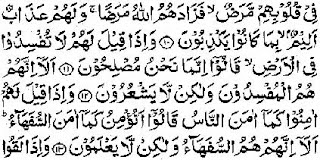 فِيْ قُلُوْبِهِمْ مَّرَضٌ ۙ فَزَادَهُمُ اللّٰهُ مَرَضًا ۚ وَلَهُمْ عَذَابٌ
اَلِيْمٌۢ ۙ بِمَا كَانُوْا يَكْذِبُوْنَ ۝۱۰ وَاِذَا قِيْلَ لَهُمْ لَا تُفْسِدُوْا
فِي الْاَرْضِ ۙ قَالُوْٓا اِنَّمَا نَحْنُ مُصْلِحُوْنَ ۝۱۱ اَلَآ اِنَّهُمْ
هُمُ الْمُفْسِدُوْنَ وَلٰكِنْ لَّا يَشْعُرُوْنَ ۝۱۲ وَاِذَا قِيْلَ لَهُمْ
اٰمِنُوْا كَمَآ اٰمَنَ النَّاسُ قَالُوْٓا اَنُؤْمِنُ كَمَآ اٰمَنَ السُّفَهَآءُ ؕ
اَلَآ اِنَّهُمْ هُمُ السُّفَهَآءُ وَلٰكِنْ لَّا يَعْلَمُوْنَ ۝۱۳ وَاِذَا لَقُوا